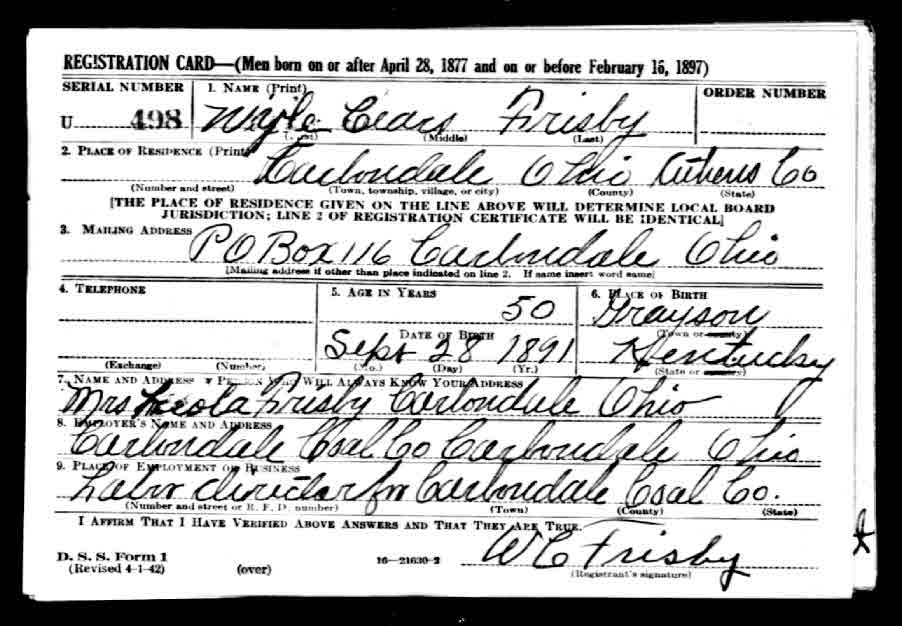 REGISTRATION CARD—(Men born on or after April 28, 1877 and on or before February 16, 1897)
SERIAL NUMBER 1. NAME (Print) ORDER NUMBER
U 498 Cears Frisby
(Middle) (Last)
2. PLACE OF RESIDENCE (Print)
Carbondale Ohio Athens Co
(Number and street) (Town, township, village, or city) (County) (State)
[THE PLACE OF RESIDENCE GIVEN ON THE LINE ABOVE WILL DETERMINE LOCAL BOARD
JURISDICTION; LINE 2 OF REGISTRATION CERTIFICATE WILL BE IDENTICAL]
3. MAILING ADDRESS
PO Box 116 Carbondale Ohio
[Mailing address if other than place indicated on line 2. If same insert word same]
4. TELEPHONE 5. AGE IN YEARS 6. PLACE OF BIRTH
50 Grayson
DATE OF BIRTH (Town or county)
Sept 28 1891 Kentucky
(Exchange) (Number) (Mo.) (Day) (Yr.) (State or country)
7. NAME AND ADDRESS OF PERSON WHO WILL ALWAYS KNOW YOUR ADDRESS
Mrs Frisby Carbondale Ohio
8. EMPLOYER'S NAME AND ADDRESS
Carbondale Coal Co Carbondale Ohio
9. PLACE OF EMPLOYMENT OR BUSINESS
Labor director for Carbondale Coal Co.
(Number and street or R. F. D. number) (Town) (County) (State)
I AFFIRM THAT I HAVE VERIFIED ABOVE ANSWERS AND THAT THEY ARE TRUE.
W C Frisby
D. S. S. Form 1
(Revised 4-1-42) (over) 16—21630-2 (Registrant's signature)